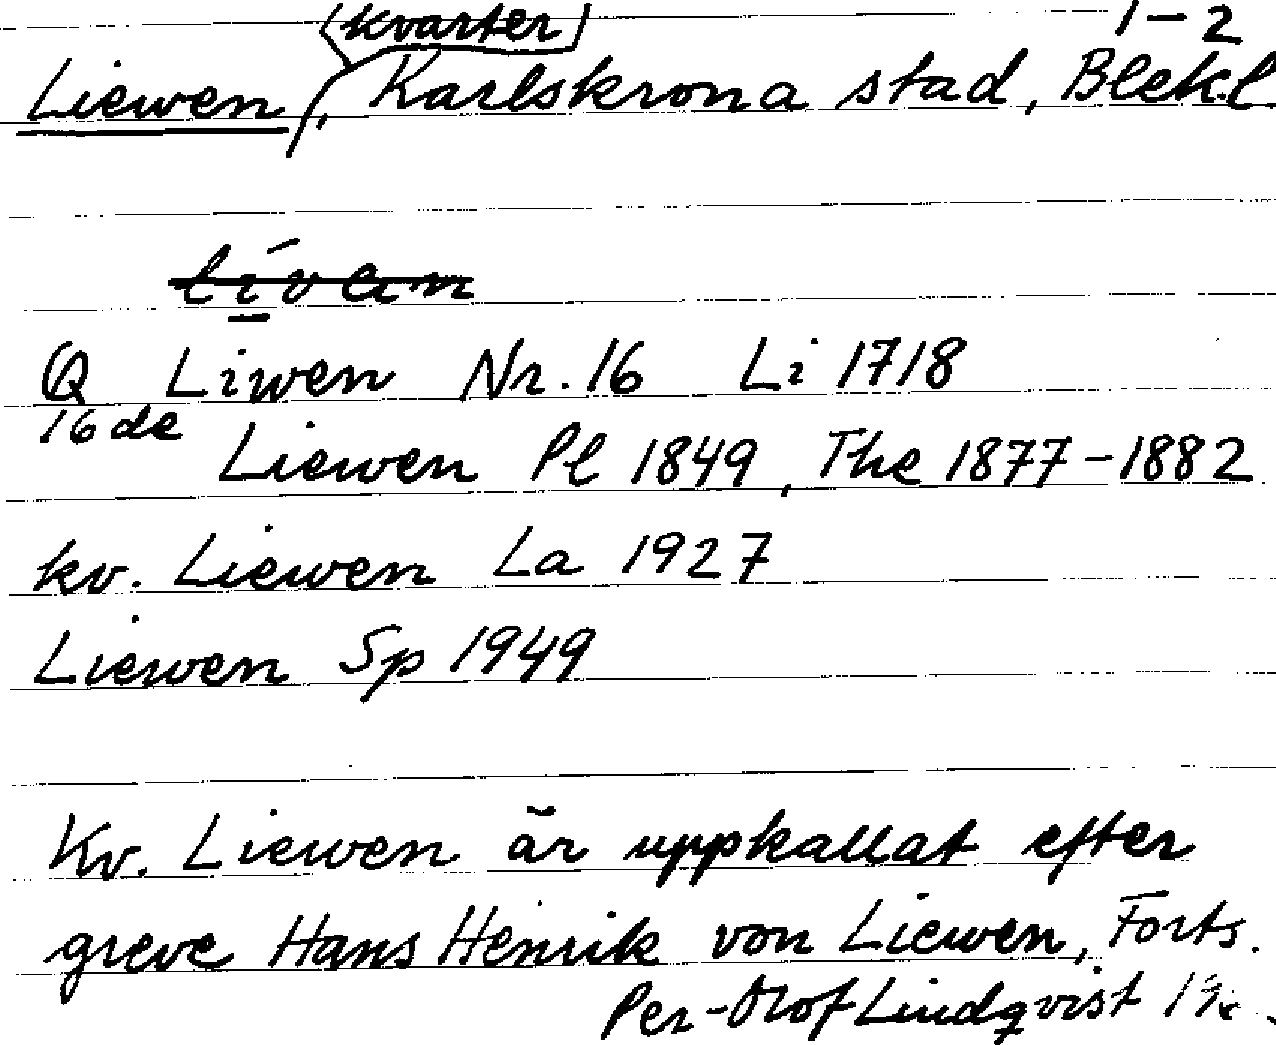 (kvarter) 1-2
Liewen, Karlskrona stad, Blekl
livan
Q Liwen Nr. 16 Li 1718
16de
Liewen Pl 1849, The 1877-1882
kv. Liewen La 1927
Liewen Sp 1949
Kv. Liewen är uppkallat efter
greve Hans Henrik von Liewen, Forts.
Per-Olof Lindqvist